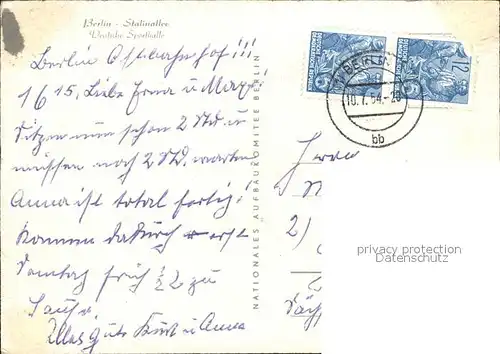 Berlin - Stalinallee
Deutsche Sporthalle
Berlin Ostbahnhof!!!
16 15. Liebe Erna u. Max!
Sitzen nun schon 2 Std u.
müssen noch 2 Std. warten
Anna ist total fertig!
Kommen dadurch erst
Sonntag früh 1/2 2 zu
Hause.
Alles gute Kurt u Anna
NATIONALES AUFBAUKOMITEE BERLIN
BERLIN
10.7.54.-20
bb
12
Herrn
2)
privacy protection
DARMER.de